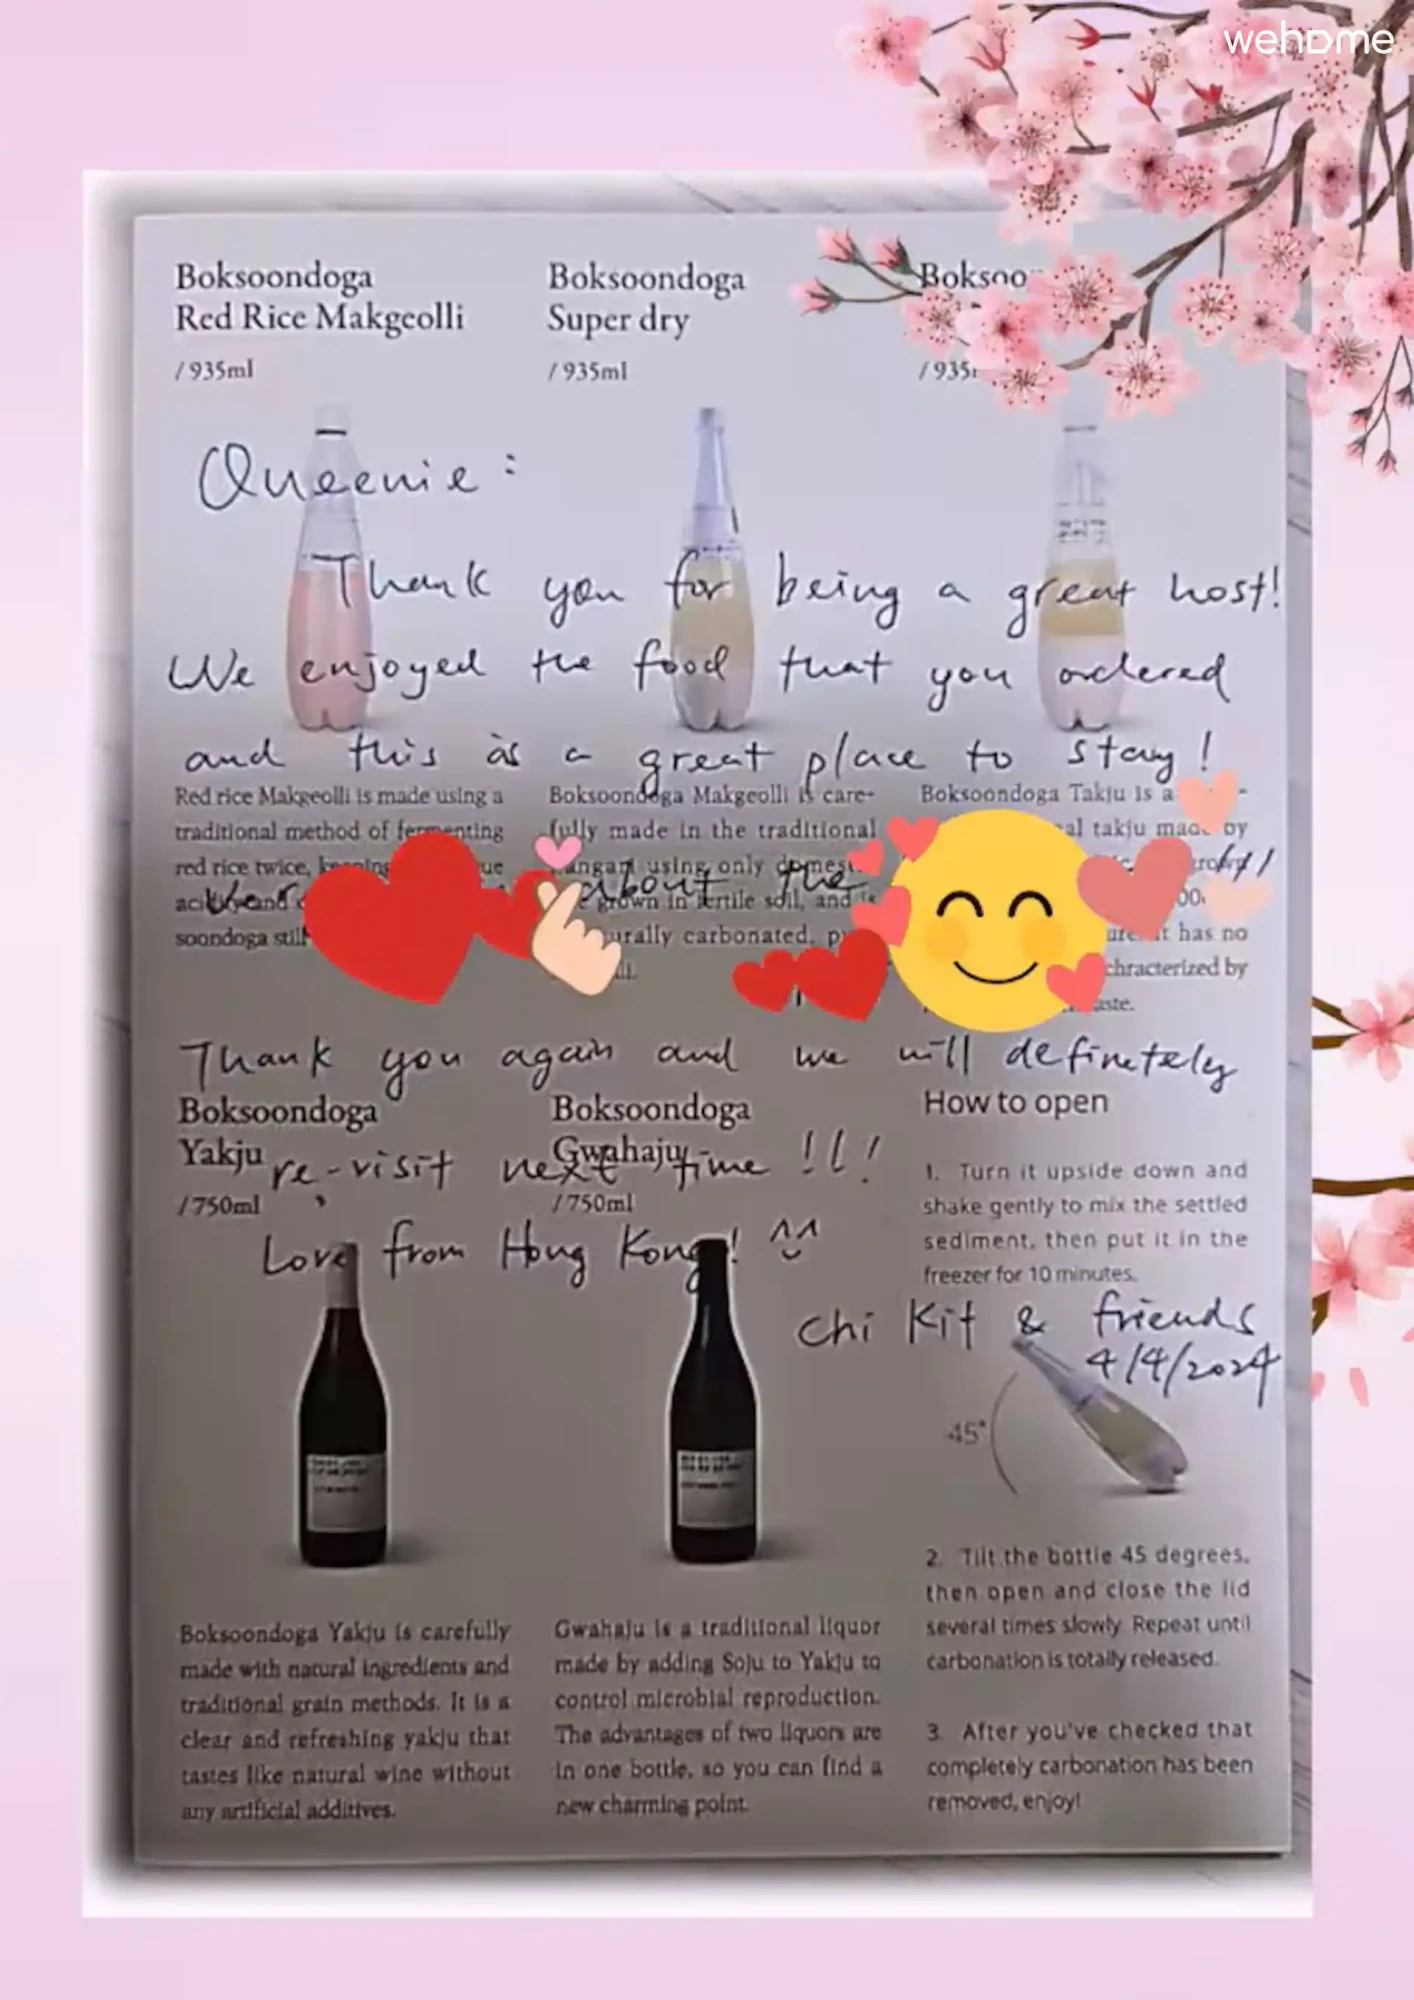 wehome
Boksoondoga
Red Rice Makgeolli
/ 935ml
Boksoondoga
Super dry
/ 935ml
Boksoo
/ 935
Queenie :
Thank you for being a great host!
We enjoyed the food that you ordered
and this is a great place to stay !
Red rice Makgeolli is made using a
traditional method of fermenting
red rice twice,
soondoga still
Boksoondoga Makgeolli is care-
fully made in the traditional
using only domes
grown in fertile soil, and is
urally carbonated,
Boksoondoga Takju is a
al takju made by
has no
chracterized by
aste.
about the
Thank you again and we will definetely
re-visit next time !!!
Love from Hong Kong! ^^
Chi Kit & friends
4/4/2024
Boksoondoga
Yakju
/ 750ml
Boksoondoga Yakju is carefully
made with natural ingredients and
traditional grain methods. It is a
clear and refreshing yakju that
tastes like natural wine without
any artificial additives.
Boksoondoga
Gwahaju
/ 750ml
Gwahaju is a traditional liquor
made by adding Soju to Yakju to
control microbial reproduction.
The advantages of two liquors are
in one bottle, so you can find a
new charming point.
How to open
1. Turn it upside down and
shake gently to mix the settled
sediment, then put it in the
freezer for 10 minutes.
45°
2. Tilt the bottle 45 degrees,
then open and close the lid
several times slowly. Repeat until
carbonation is totally released.
3. After you've checked that
completely carbonation has been
removed, enjoy!